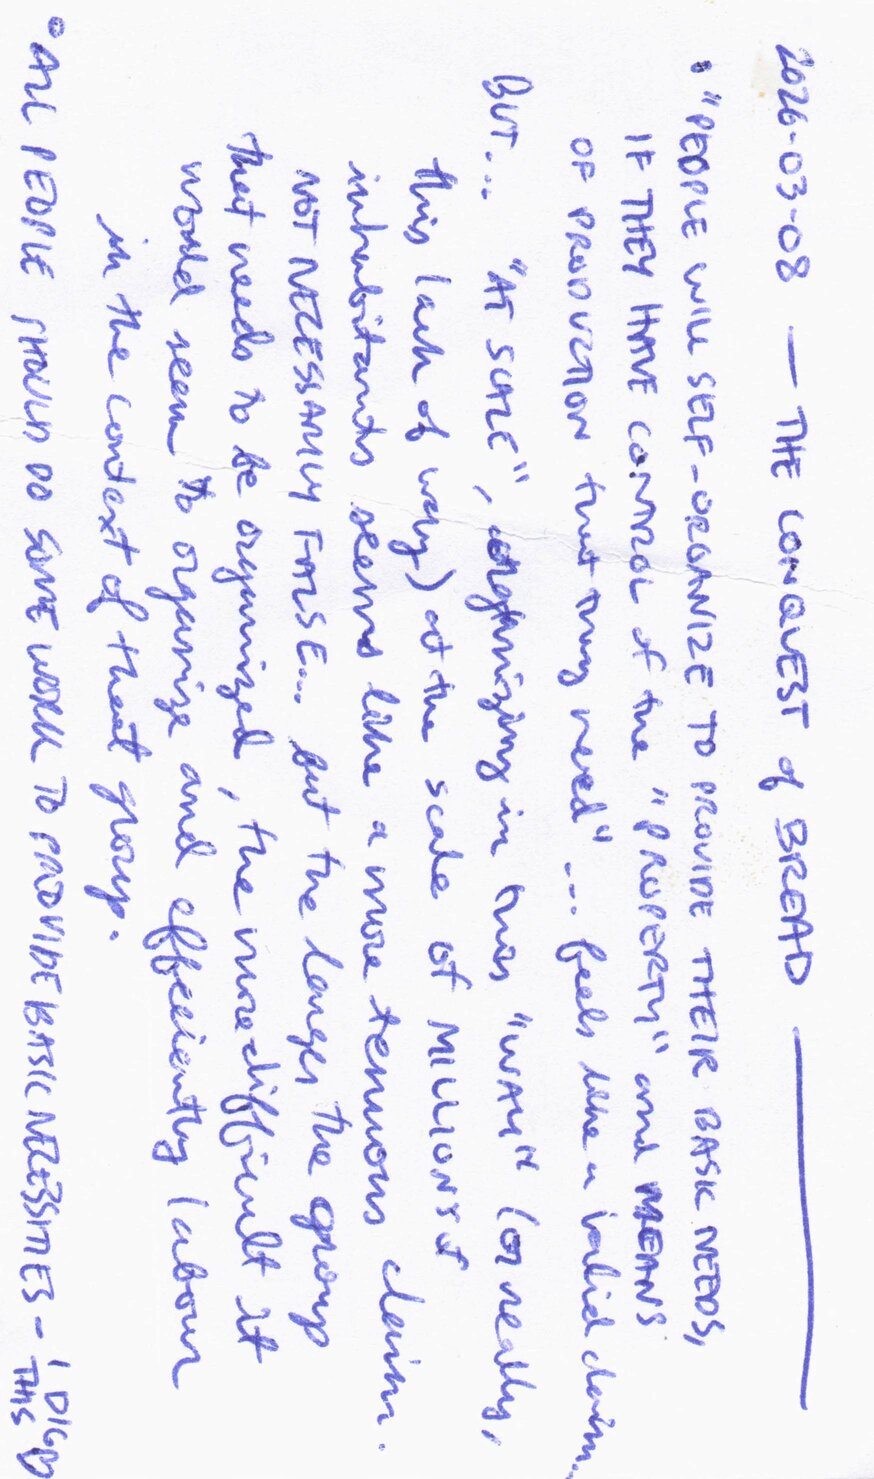 2026-03-08 — THE CONQUEST of BREAD
• "PEOPLE WILL SELF-ORGANIZE TO PROVIDE THEIR BASIC NEEDS,
IF THEY HAVE CONTROL of the "PROPERTY" and MEANS
OF PRODUCTION that they need" ... feels like a valid claim.
BUT... "AT SCALE", organizing in this "WAY" (or really,
this lack of way) at the scale of MILLIONS of
inhabitants seems like a more tenuous claim.
NOT NECESSARILY FALSE... but the larger the group
that needs to be organized, the more difficult it
would seem to organize and efficiently labour
in the context of that group.
• ALL PEOPLE SHOULD DO SOME WORK TO PROVIDE BASIC NECESSITIES - I DIG
THIS